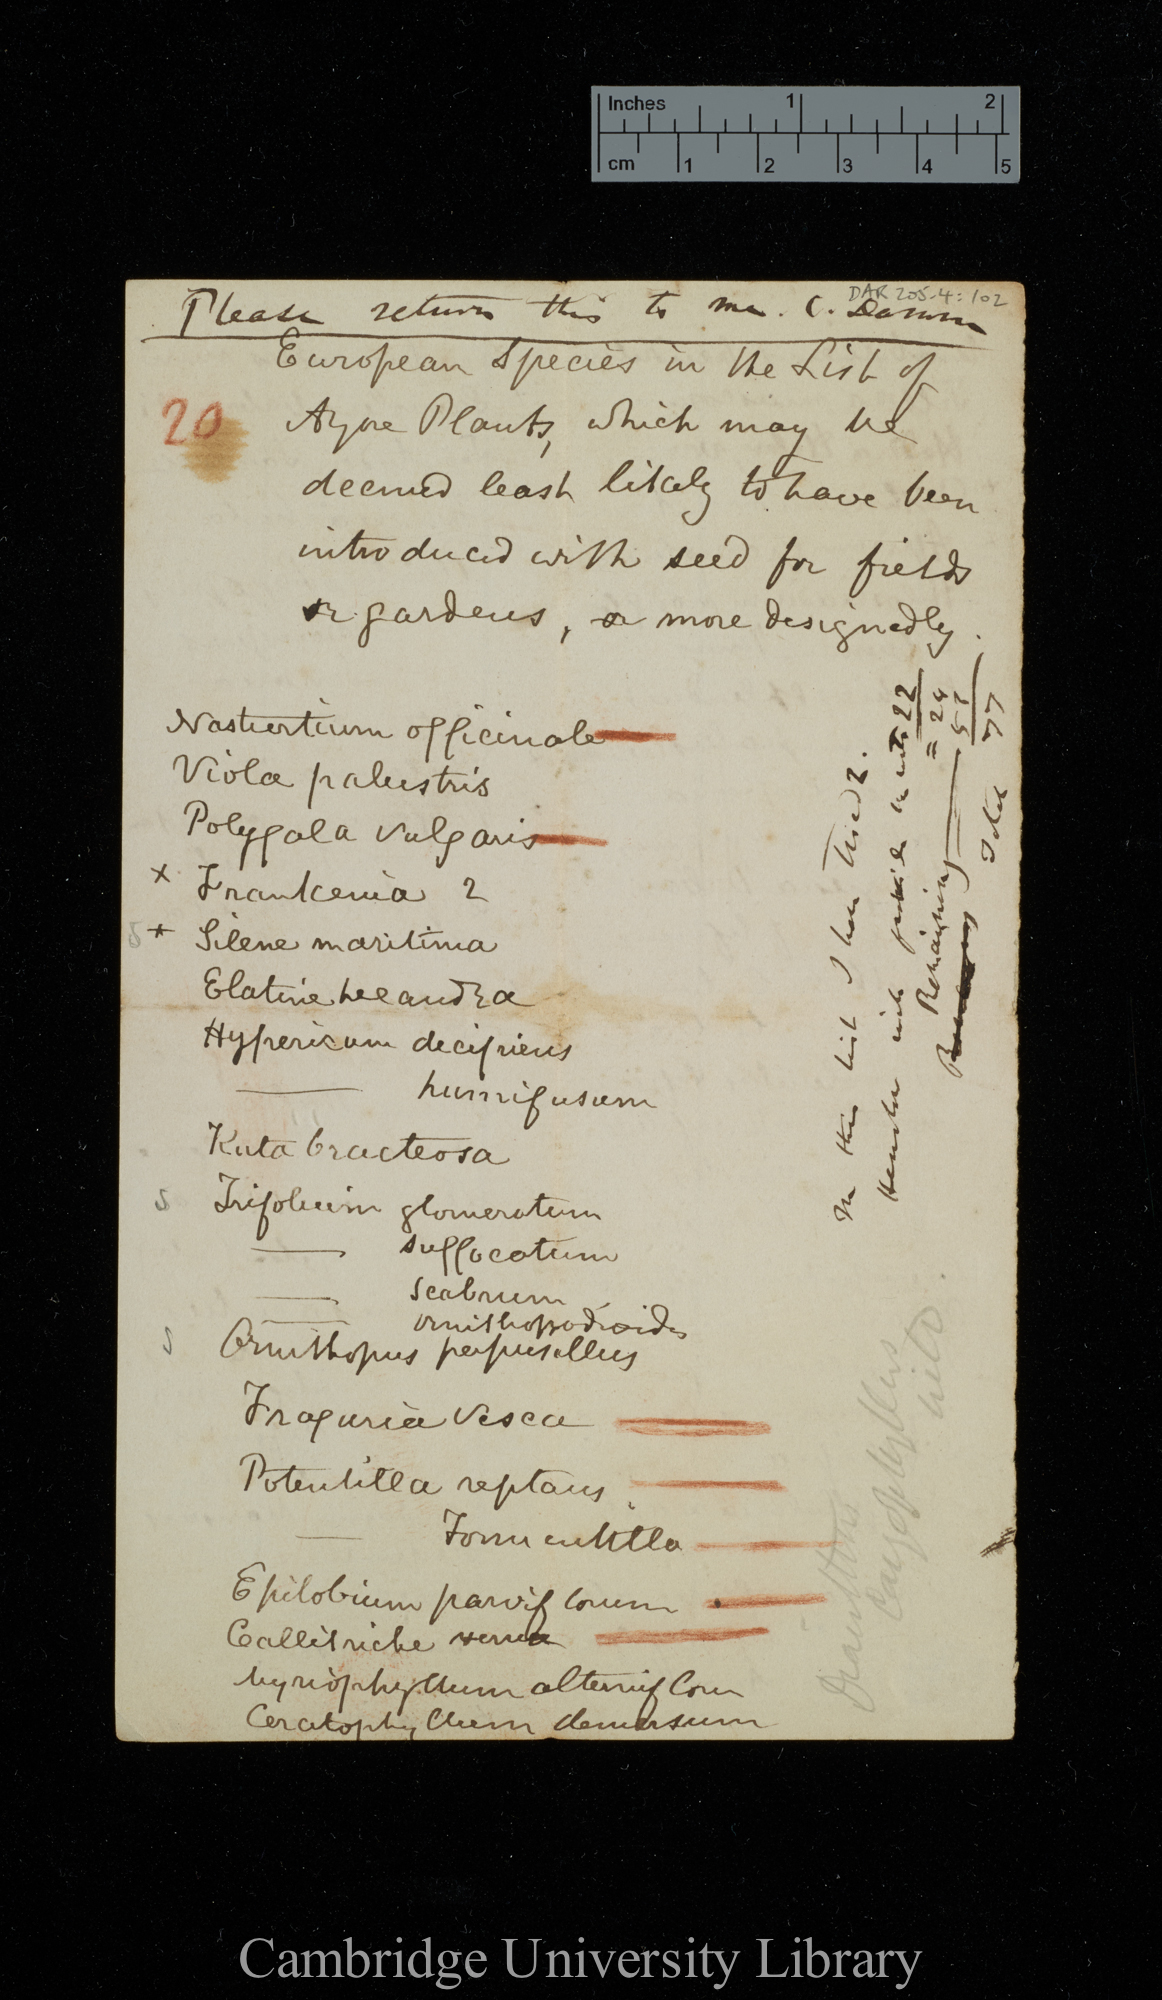 Inches 1 2
cm 1 2 3 4 5
DAR 205.4:102
Please return this to me. C. Darwin
European Species in the List of
20
Azore Plants, which may be
deemed least likely to have been
introduced with seed for fields
or gardens, or more designedly.
Nasturtium officinale
Viola palustris
Polygala vulgaris
x Frankenia 2
5 * Silene maritima
Elatine hexandra
Hypericum decipiens
—— humifusum
Ruta bracteosa
5 Trifolium glomeratum
—— suffocatum
—— scabrum
—— ornithopodioides
5 Ornithopus perpusillus
Fragaria vesca
Potentilla reptans
—— Tormentilla
Epilobium parviflorum
Callitriche verna
Myriophyllum alterniflorum
Ceratophyllum demersum
In this list I have tried 2.
Henslow with
22
Remaining —— = 24
51
Total 77
Caryophyllus
Cambridge University Library